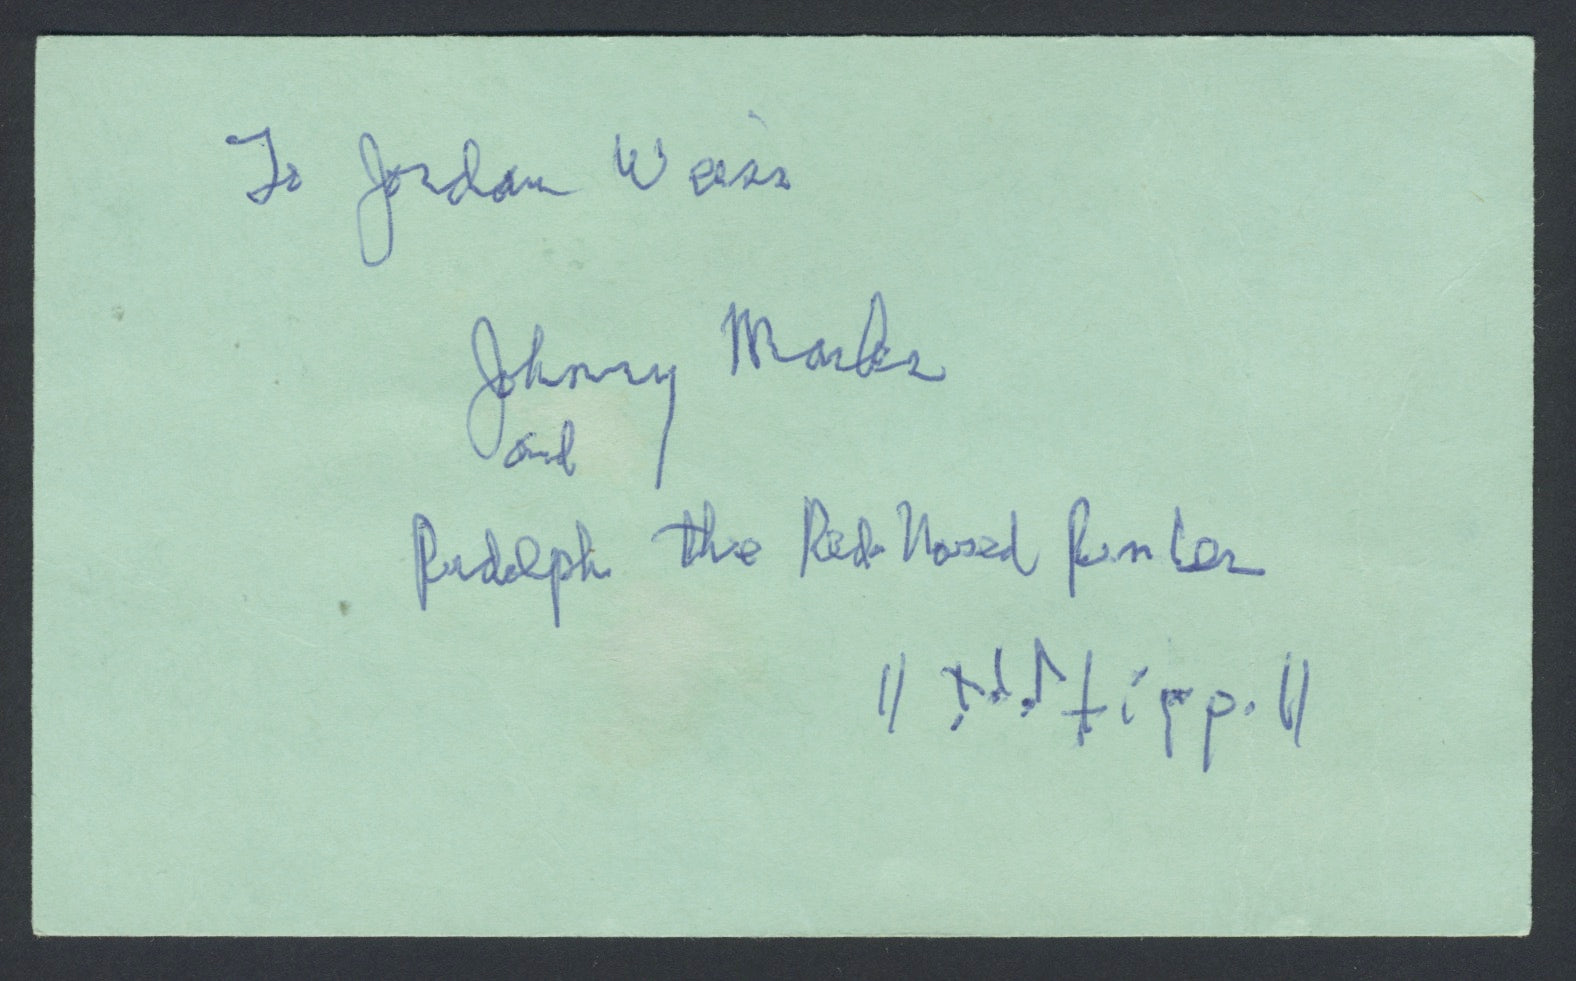 To Jordan Weiss
Johnny Marks
and
Rudolph the Red-Nosed Reindeer